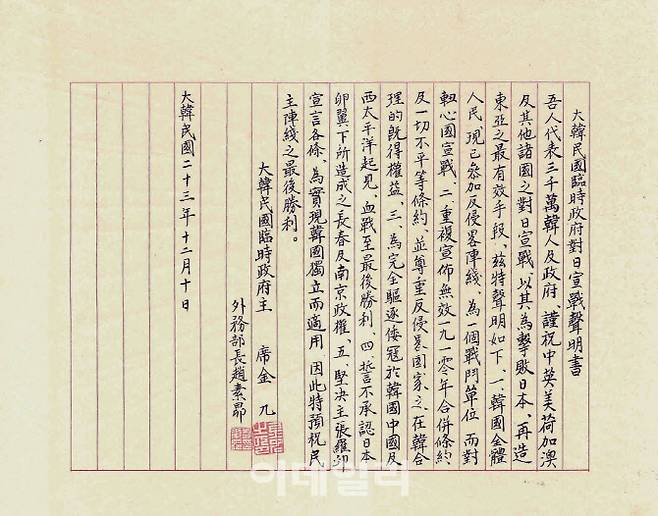 大韓民國臨時政府對日宣戰聲明書
吾人代表三千萬韓人及政府、謹祝中英美荷加澳
及其他諸國之對日宣戰、以其為擊敗日本、再造
東亞之最有效手段、茲特聲明如下、一、韓國全體
人民、現已參加反侵畧陣綫、為一個戰鬥單位、而對
軸心國宣戰、二、重複宣佈無效一九一零年合併條約、
及一切不平等條約、並尊重反侵畧國家之、在韓合
理的既得權益、三、為完全驅逐倭寇於韓國中國及
西太平洋起見、血戰至最後勝利、四、誓言不承認日本
卵翼下所造成之長春及南京政權、五、堅決主張羅邱
宣言各條、為實現韓國獨立而適用、因此特預祝民
主陣綫之最後勝利。
大韓民國臨時政府主 席金 九
外務部長趙素昻
大韓民國二十三年十二月十日
이데일리